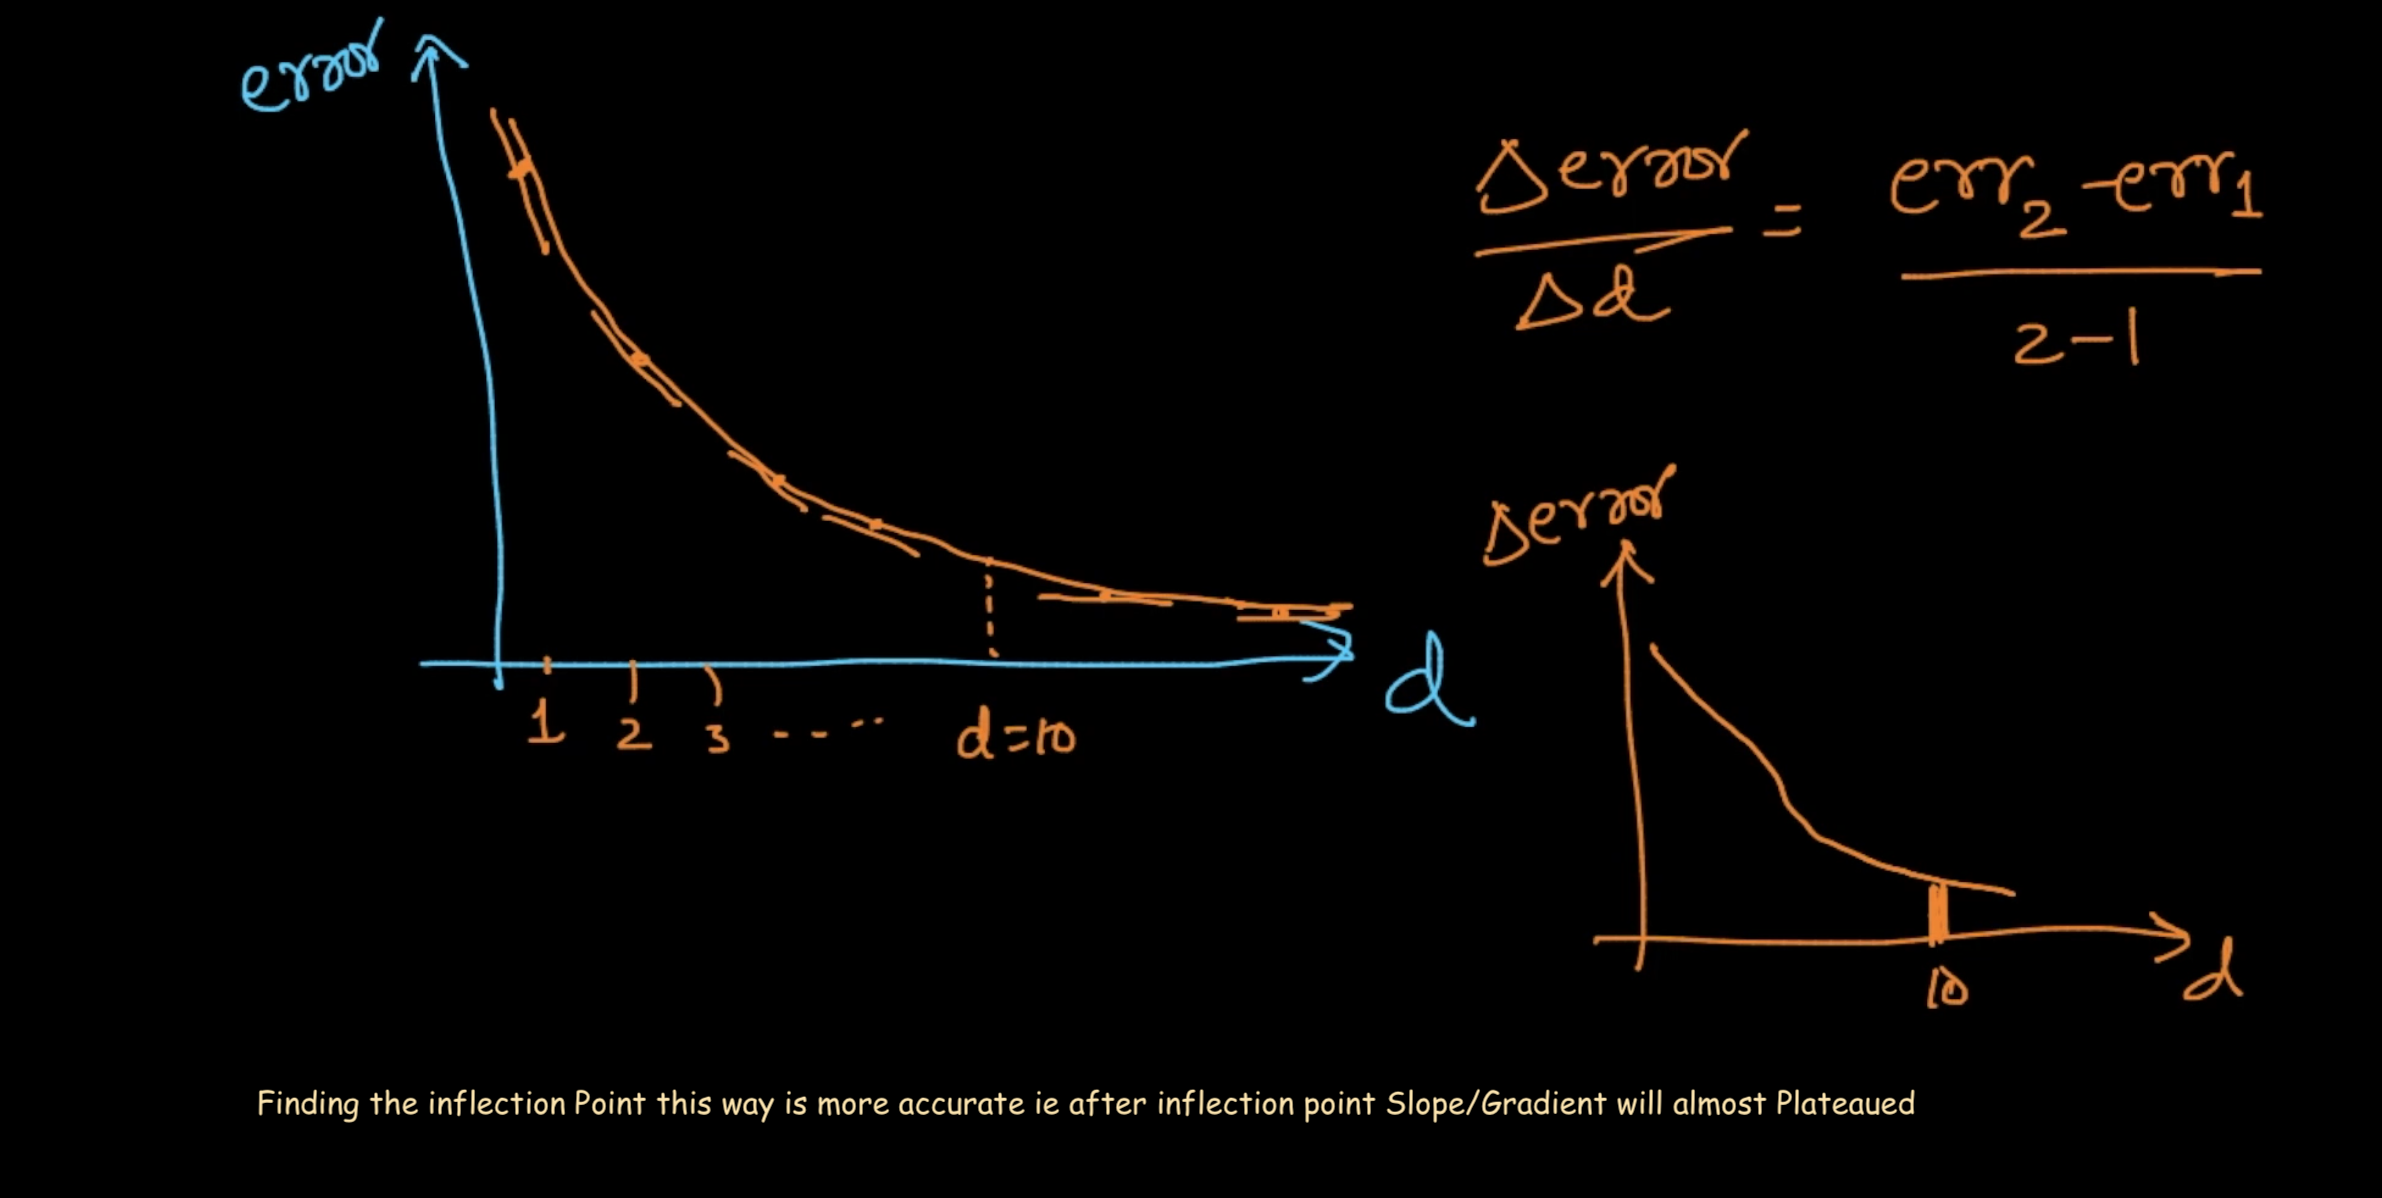 error
Δerror / Δd = err₂ - err₁ / 2-1
Δerror
d
1 2 3 ---- d=10
10
d
Finding the inflection Point this way is more accurate ie after inflection point Slope/Gradient will almost Plateaued